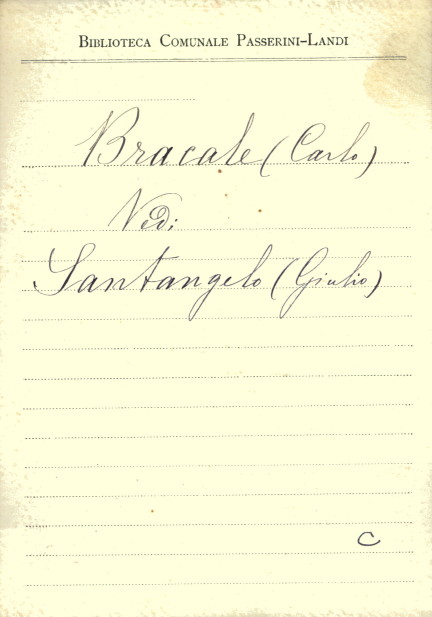 Biblioteca Comunale Passerini-Landi
Bracale (Carlo)
Vedi
Santangelo (Giulio)
C